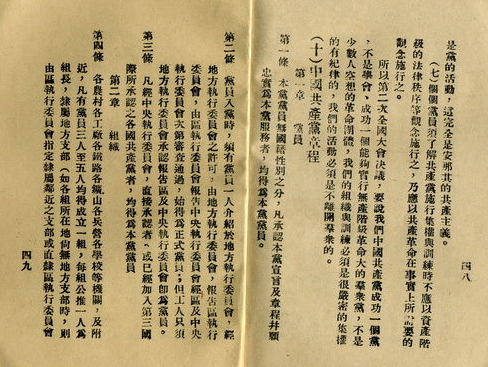 四八
是黨的活動，這完全是安那其的共產主義。
（七）個個黨員須了解共產黨施行集權與訓練時不應以資產階
級的法律秩序等觀念施行之，乃應以共產革命在事實上所需要的
觀念施行之。
所以第二次全國大會決議，要說我們中國共產黨成功一個黨
，不是學會，成功一個能夠實行無產階級革命大的羣衆黨，不是
少數人空想的革命團體，我們的組織與訓練必須是很嚴密的集權
的有紀律的，我們的活動必須是不離開羣衆的。
（十）中國共產黨章程
第一章　黨員
第一條　本黨黨員無國籍性別之分，凡承認本黨宣言及章程并願
忠實爲本黨服務者，均得爲本黨黨員。
第二條　黨員入黨時，須有黨員一人介紹於地方執行委員會，經
地方執行委員會之許可，由地方執行委員會，報告區執行
委員會，由區執行委員會報告中央執行委員會經區及中央
執行委員會次第審查通過，始得爲正式黨員；但工人只須
地方執行委員會承認報告區及中央執行委員會卽爲黨員。
第三條　凡經中央執行委員會，直接承認者，或已經加入第三國
際所承認之各國共產黨者，均得爲本黨黨員
第二章　組織
第四條　各農村各工廠各鐵路各鑛山各兵營各學校等機關，及附
近，凡有黨員三人至五人均得成立一組，每組公推一人爲
組長，隸屬地方支部（如各組所在地尚無地方支部時，則
由區執行委員會指定隸屬鄰近之支部或直隸區執行委員會
四九